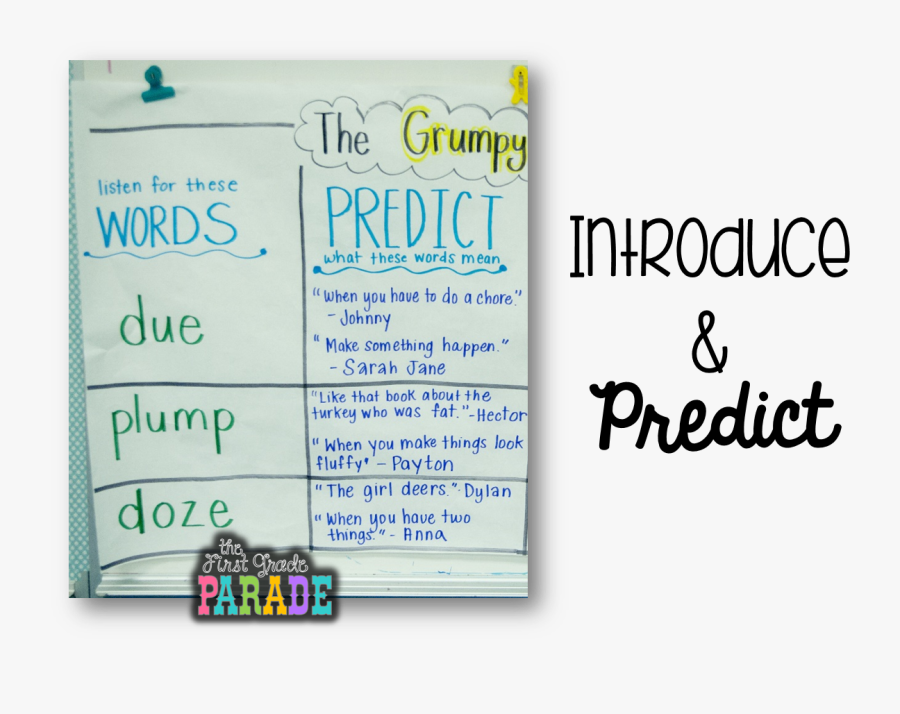 The Grumpy
listen for these
WORDS
PREDICT
what these words mean
due
"When you have to do a chore."
- Johnny
"Make something happen."
- Sarah Jane
plump
"Like that book about the
turkey who was fat."-Hector
"When you make things look
fluffy" - Payton
doze
"The girl deers."-Dylan
"When you have two
things." - Anna
the
First Grade
PARADE
Introduce
&
Predict